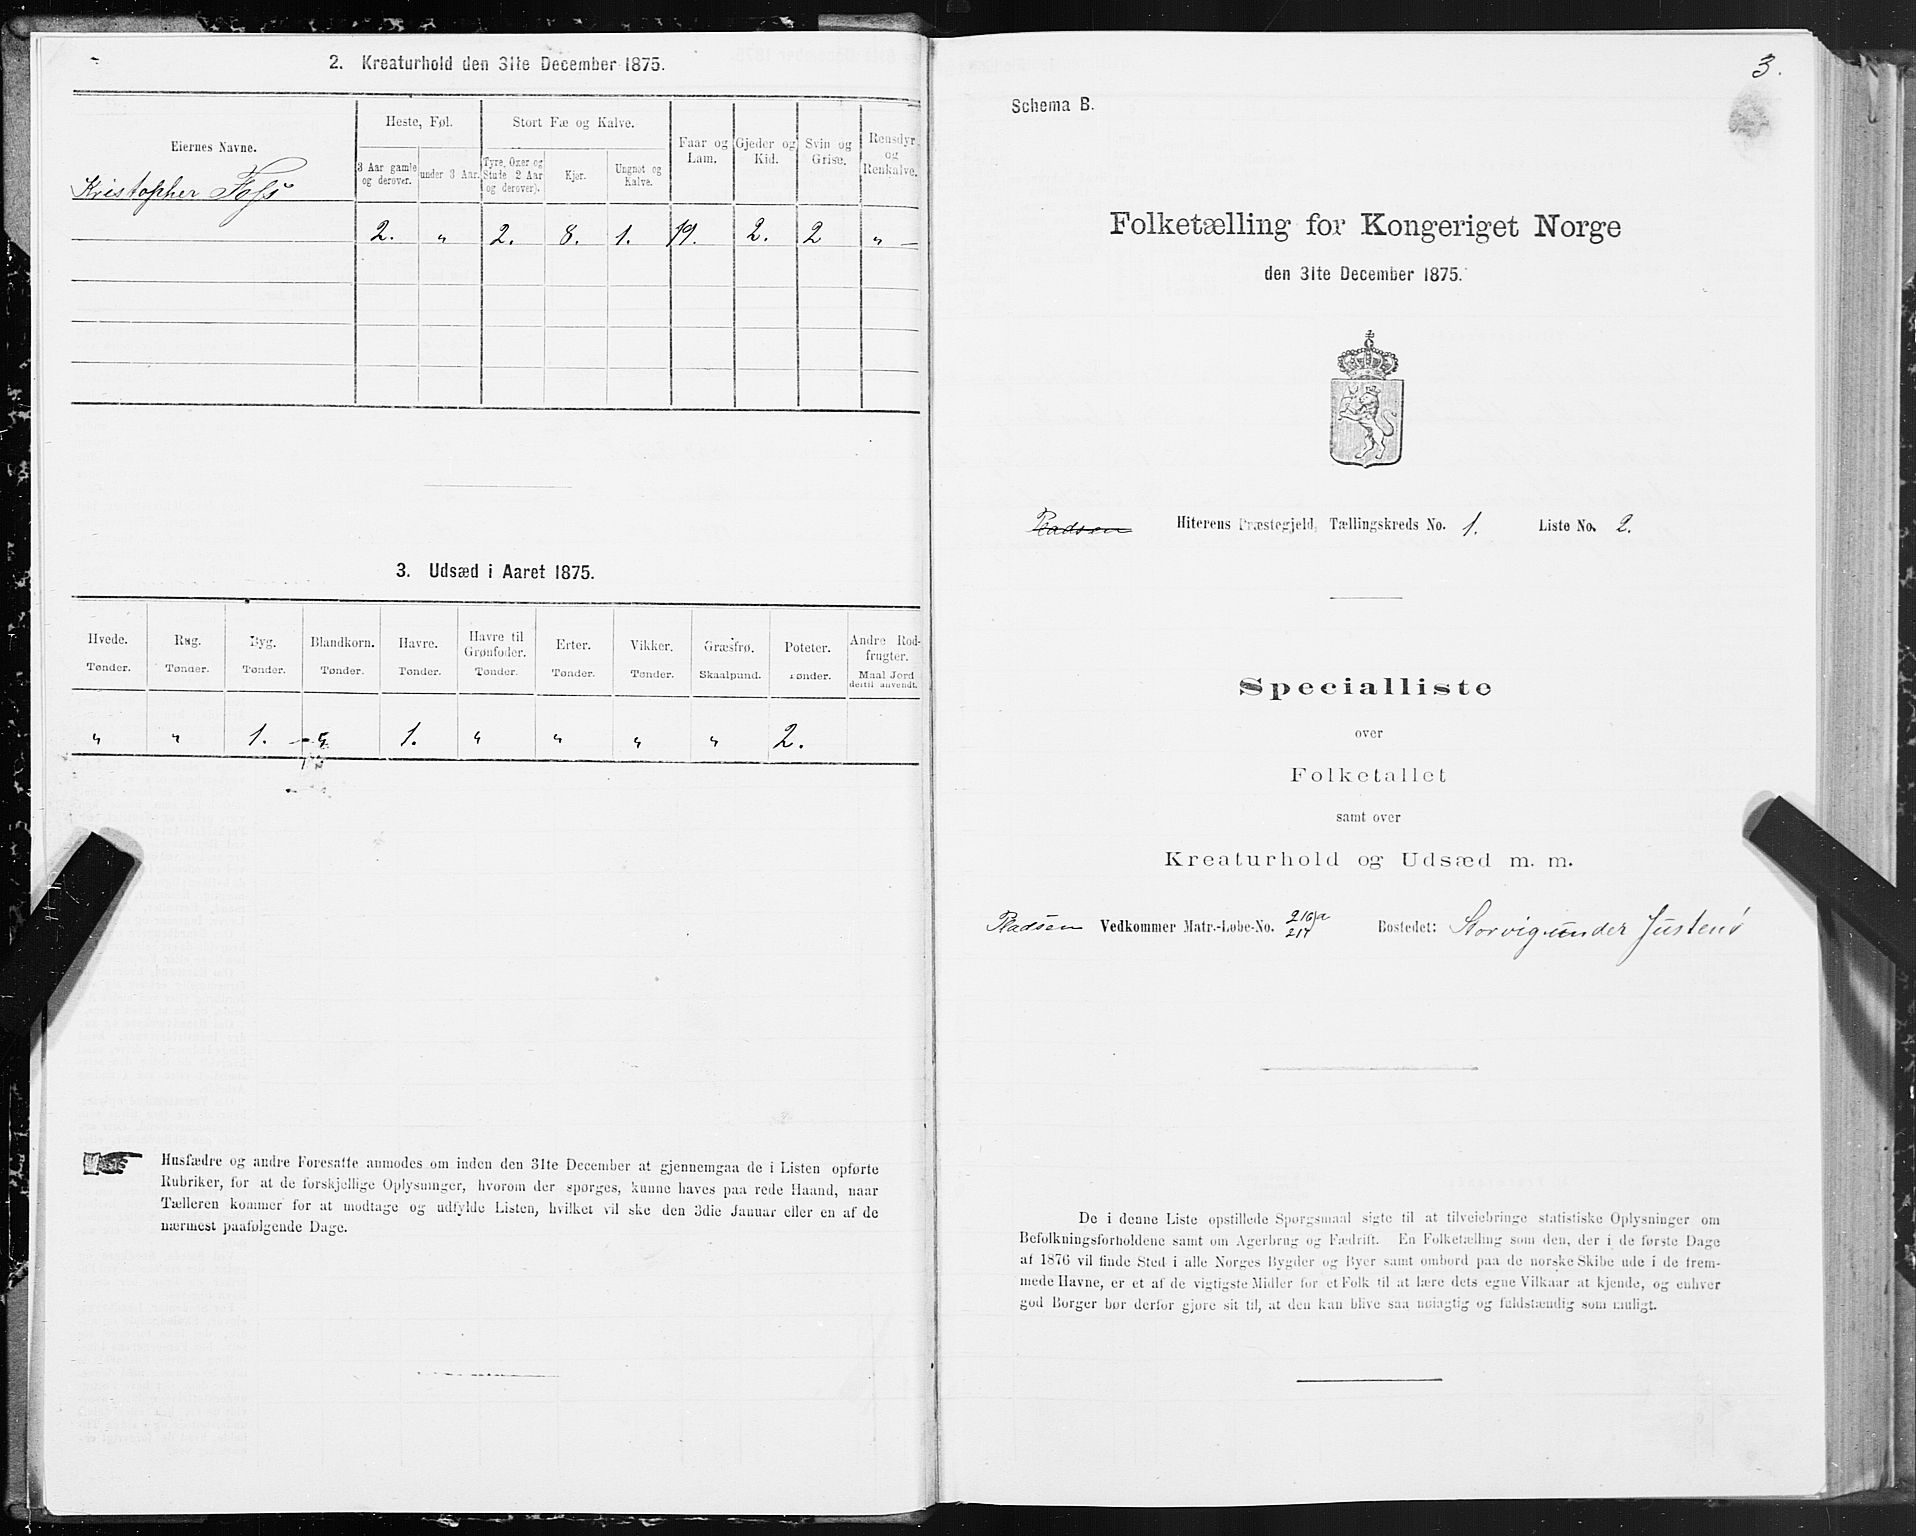 2. Kreaturhold den 31te December 1875.
Eiernes Navne.
Heste, Føl.
Stort Fæ og Kalve.
Faar og Lam.
Gjeder og Kid.
Svin og Grise.
Rensdyr og Renkalve.
3 Aar gamle og derover.
under 3 Aar.
Tyre, Oxer og Stude 2 Aar og derover).
Kjør.
Ungnøt og Kalve.
Kristopher Foss
2. " 2. 8. 1. 19. 2. 2 " –
3. Udsæd i Aaret 1875.
Hvede. Tønder.
Rug. Tønder.
Byg. Tønder.
Blandkorn. Tønder.
Havre. Tønder.
Havre til Grønfoder. Tønder.
Erter. Tønder.
Vikker. Tønder.
Græsfrø. Skaalpund.
Poteter. Tønder.
Andre Rodfrugter. Maal Jord dertil anvendt.
" " 1. " 1. " " " " 2.
Husfædre og andre Foresatte anmodes om inden den 31te December at gjennemgaa de i Listen opførte
Rubriker, for at de forskjellige Oplysninger, hvorom der spørges, kunne haves paa rede Haand, naar
Tælleren kommer for at modtage og udfylde Listen, hvilket vil ske den 3die Januar eller en af de
nærmest paafølgende Dage.
3.
Schema B.
Folketælling for Kongeriget Norge
den 31te December 1875.
Hiterens Præstegjeld, Tællingskreds No. 1. Liste No. 2.
Specialliste
over
Folketallet
samt over
Kreaturhold og Udsæd m. m.
Vedkommer Matr.-Løbe-No. 216a 217 Bostedet: Storvig under Justenö
De i denne Liste opstillede Spørgsmaal sigte til at tilveiebringe statistiske Oplysninger om
Befolkningsforholdene samt om Agerbrug og Fædrift. En Folketælling som den, der i de første Dage
af 1876 vil finde Sted i alle Norges Bygder og Byer samt ombord paa de norske Skibe ude i de frem-
mede Havne, er et af de vigtigste Midler for et Folk til at lære dets egne Vilkaar at kjende, og enhver
god Borger bør derfor gjøre sit til, at den kan blive saa nøiagtig og fuldstændig som muligt.